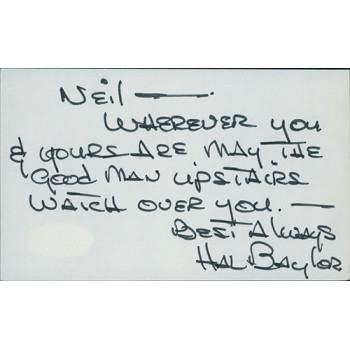 Neil —.
Wherever you
& yours are may the
Good Man upstairs
watch over you. —
Best Always
Hal Baylor